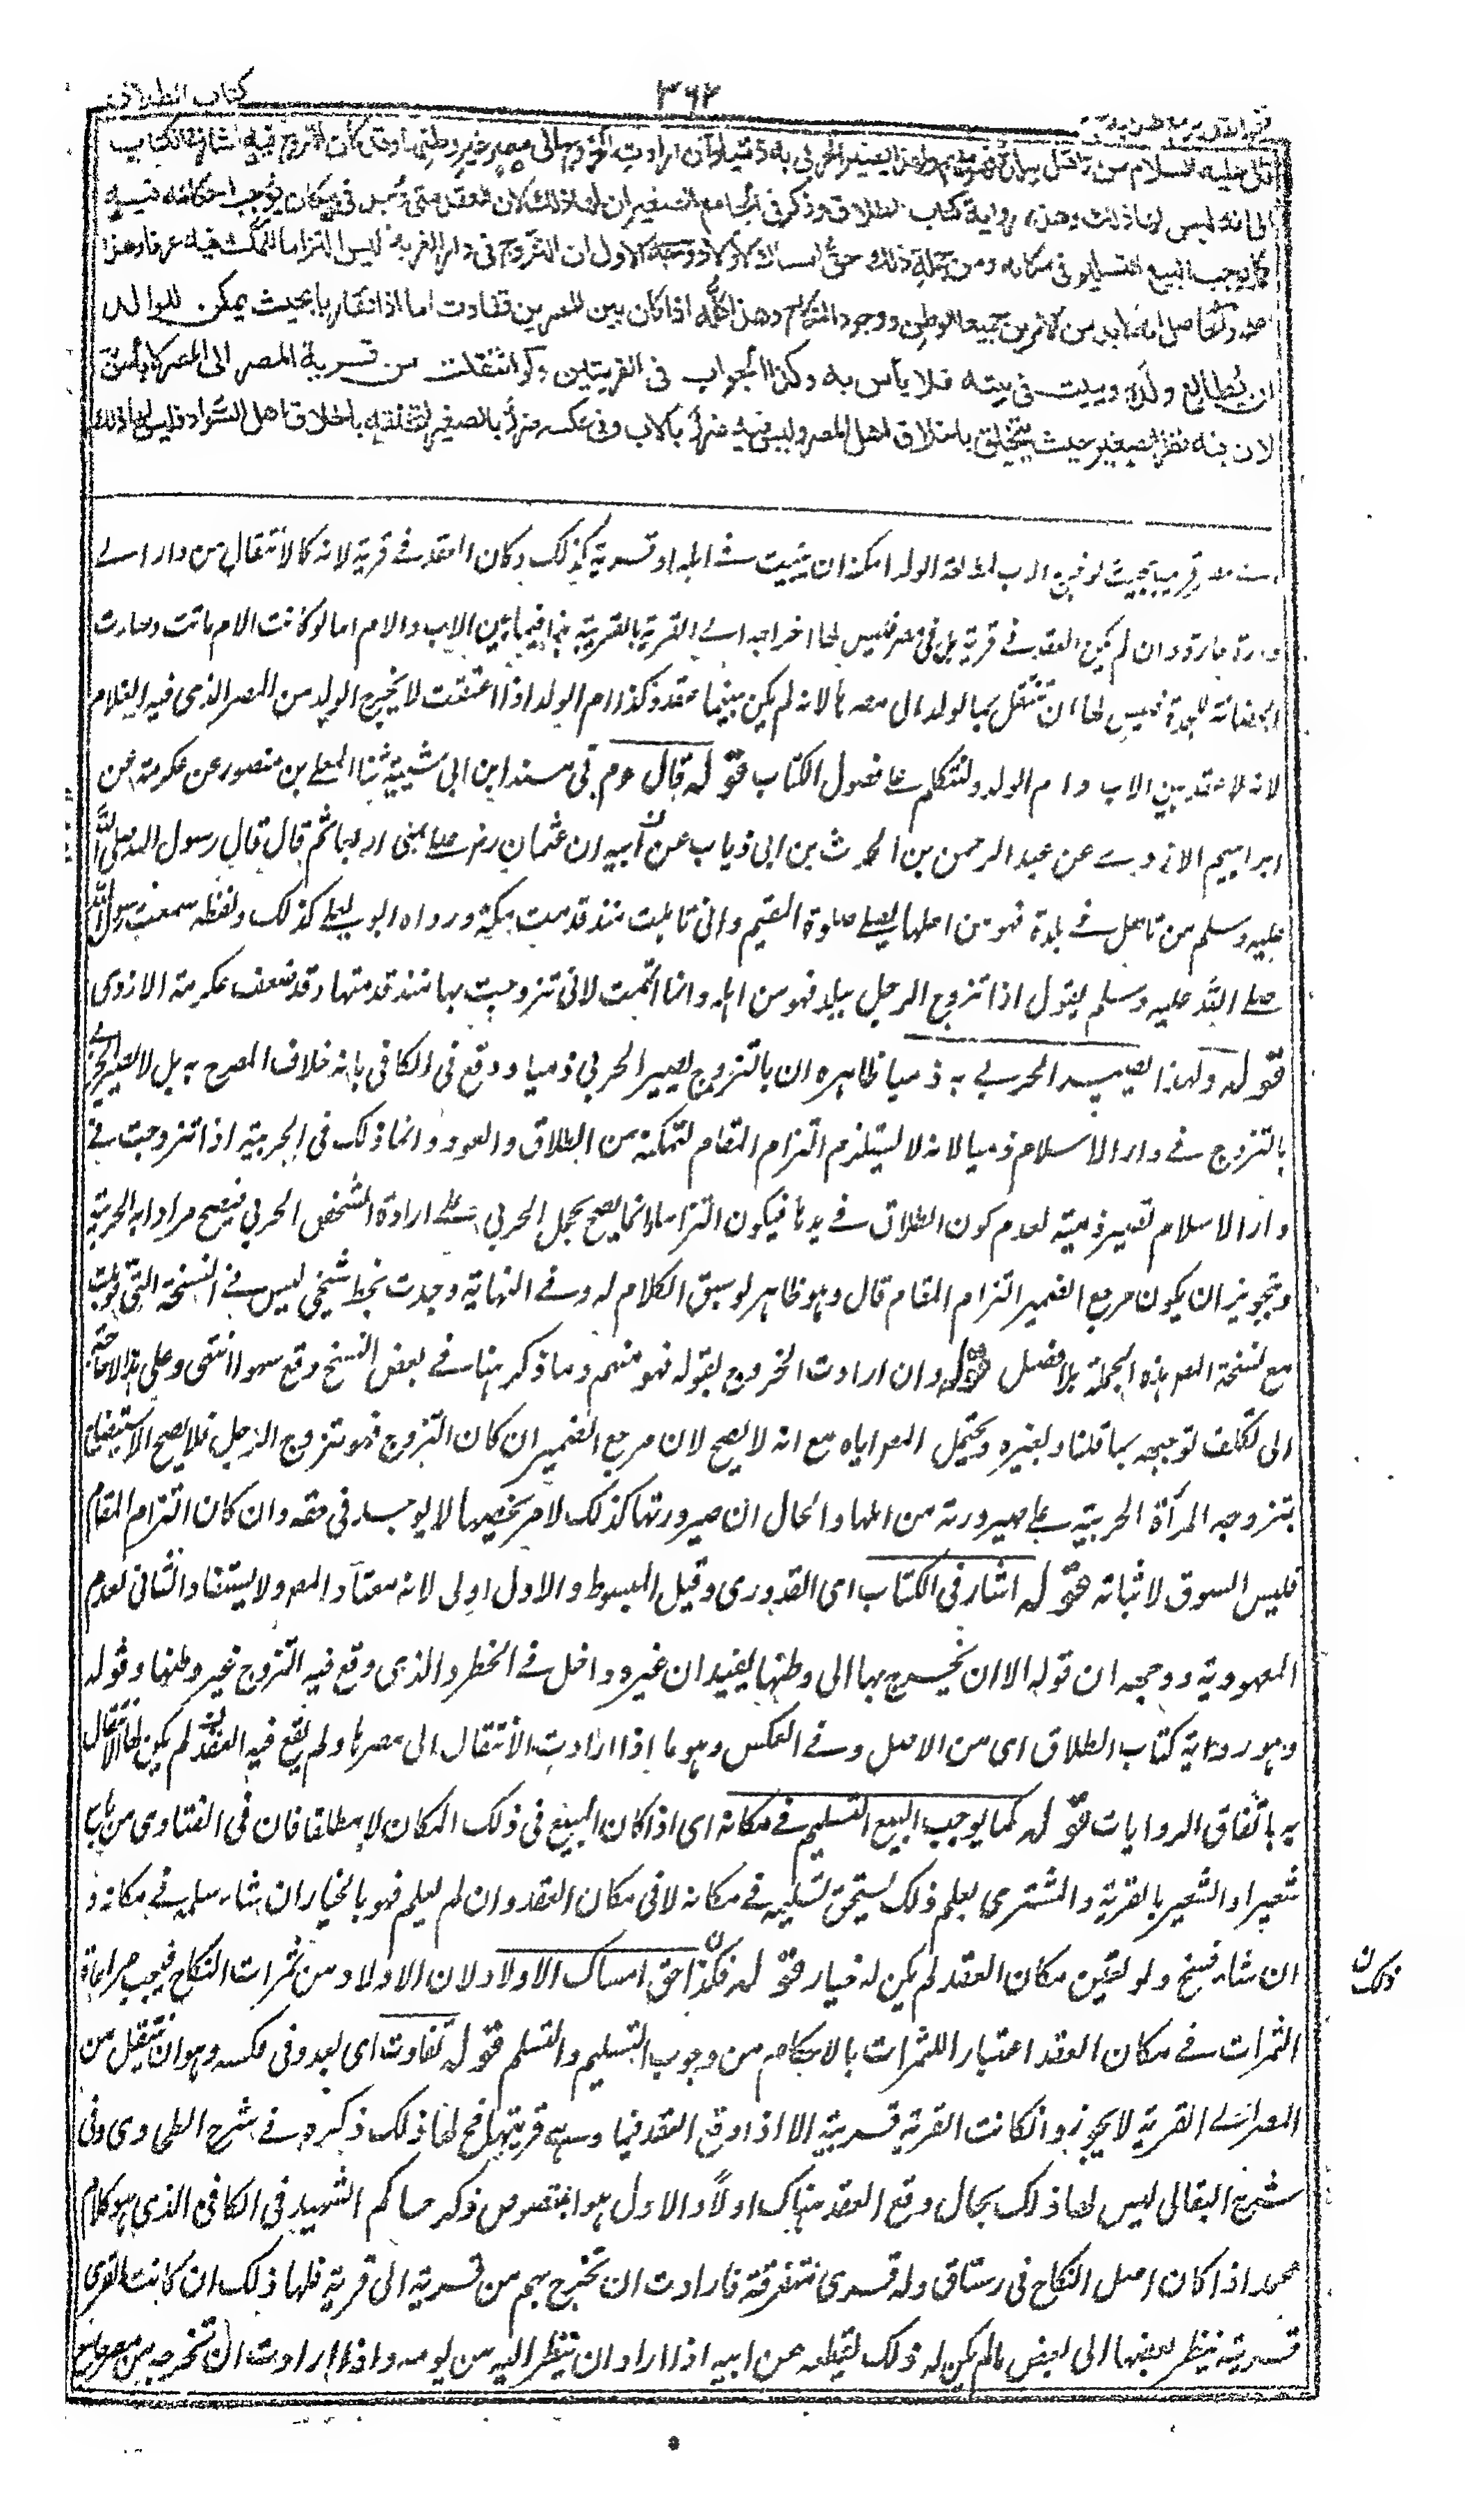 كتاب الطلاق
٣٦٢
فتح القدير مع هداية
قال عليه السلام من تأهل ببلدة فهو منهم ولهذا يصير الحربى به ذميا وان ارادت الخروج الى مصر غير وطنها وقد كان التزوج فيه اشار فى الكتاب
الى انه ليس لها ذلك وهذه رواية كتاب الطلاق وذكر فى الجامع الصغير ان لها ذلك لان العقد متى وجد فى مكان يوجب احكامه فيه
كما يوجب البيع التسليم فى مكانه ومن جملة ذلك حق امساك الاولاد وجه الاول ان التزوج فى دار الغربة ليس التزاما للمكث فيه عرفا وهذا
اصح والحاصل انه لابد من الامرين جميعا الوطن ووجود النكاح وهذا كله اذا كان بين المصرين تفاوت اما اذا تقاربا بحيث يمكن للوالد
ان يطالع ولده ويبيت فى بيته فلا بأس به وكذا الجواب فى القريتين ولو انتقلت من قرية المصر الى المصر لا بأس
لان فيه نظر الصغير حيث يتخلق باخلاق اهل المصر وليس فيه ضرر بالاب وفى عكسه ضرر بالصغير لتخلقه باخلاق اهل السواد فليس لها ذلك
مصر قريب بحيث لو خرج الاب لمطالعة الولد امكنه ان يبيت فى اهله او قرية كذلك وكان العقد فى قرية لانه كالانتقال من دار الى
دارة جارة وان لم يكن العقد فى قرية بل فى مصر فليس لها اخراجه الى القرية بالقريبة هذا فيما بين الاب والام اما لو كانت الام ماتت وصارت
الحضانة للجدة فليس لها ان تنتقل بالولد الى مصرها لانه لم يكن بينهما عقد وكذا ام الولد اذا اعتقت لا يخرج الولد من المصر الذى فيه الغلام
لانه لا عقد بين الاب وام الولد ولنتكلم على فصول الكتاب قوله قال عم فى مسند ابن ابى شيبة ثنا المعلى بن منصور عن عكرمة عن
ابراهيم الازدى عن عبد الرحمن بن الحارث بن ابى ذباب عن ابيه ان عثمان رض صلى بمنى اربعا ثم قال قال رسول الله صلى الله
عليه وسلم من تاهل فى بلدة فهو من اهلها يصلى صلوة المقيم وانى تاهلت منذ قدمت مكة ورواه ابو يعلى كذلك ولفظه سمعت رسول الله
صلى الله عليه وسلم يقول اذا تزوج الرجل ببلد فهو من اهله وانما اتممت لانى تزوجت بها منذ قدمتها وقد ضعف عكرمة الازدى
قوله ولهذا يصير الحربى به ذميا ظاهره ان بالتزوج يصير الحربى ذميا ووقع فى الكافى بانه خلاف المصرح به بل لا يصير الحربى
بالتزوج فى دار الاسلام ذميا لانه لا يستلزم التزام المقام لتمكنه من الطلاق والعود وانما ذلك فى الحربية اذا تزوجت فى
دار الاسلام تصير ذمية لعدم كون الطلاق فى يدها فيكون التزاما وانما يصح بحمل الحربى على ارادة الشخص الحربى فيصح مرادا به الحربية
وتجويز ان يكون مرجع الضمير التزام المقام قال وهو ظاهر لو سبق الكلام له وفى النهاية وجدت بخط شيخى ليس فى النسخة التى قوبلت
مع نسخة المصر هذه الجملة بلا فصل قوله وان ارادت الخروج بقوله فهو منهم وما ذكر هنا فى بعض النسخ وقع سهوا انتهى وعلى هذا لا حاجة
الى تكلف توجيهه بما قلنا ولغيره ويحتمل المصر اياه مع انه لا يصح لان مرجع الضمير ان كان التزوج فهو تزوج الرجل فلا يصح الاستيضاح
بتزوجه المرأة الحربية على صيرورته من اهلها والحال ان صيرورتها كذلك لامر يخصها لا يوجد فى حقه وان كان التزام المقام
فليس السوق لاثباته قوله اشار فى الكتاب اى القدورى وقيل المبسوط والاول اولى لانه معتاد المصر ولا يستفاد الثانى لعدم
المعهودية ووجهه ان قوله الا ان يخرج بها الى وطنها يفيد ان غيره داخل فى الحظر والذى وقع فيه التزوج غير وطنها وقوله
وهو رواية كتاب الطلاق اى من الاصل وفى العكس وهو ما اذا ارادت الانتقال الى مصرها ولم يقع فيه العقد لم يكن لها الانتقال
به باتفاق الروايات قوله كما يوجب البيع التسليم فى مكانه اى اذا كان المبيع فى ذلك المكان لا مطلقا فان فى الفتاوى من باب
شعيرا والشعير بالقرية والمشترى يعلم ذلك يستحق تسليمه فى مكانه لا فى مكان العقد وان لم يعلم فهو بالخيار ان شاء سلمه فى مكانه و
ان شاء فسخ ولو تعين مكان العقد لم يكن له خيار قوله فكذا حق امساك الاولاد لان الاولاد من ثمرات النكاح فيجب مراعاة
الثمرات فى مكان العقد اعتبار اللثمرات بالاحكام من وجوب التسليم والتسلم قوله تفاوت اى بعد وفى عكسه وهو ان تنتقل من
المصر الى القرية لا يجوز وان كانت القرية قريبة الا اذا وقع العقد فيها وهى قريتها فح لها ذلك ذكره فى شرح الطحاوى وفى
شرح البقالى ليس لها ذلك بحال وقع العقد هناك اولا والاول هو المنصوص ذكر حاكم الشهيد فى الكافى الذى هو كلام
محمد اذا كان اصل النكاح فى رستاق وله قرى متفرقة فارادت ان تخرج بهم من قرية الى قرية فلها ذلك ان كانت القرى
قريبة ينظر بعضها الى بعض مالم يكن له ذلك يقطعه عن ابيه اذا اراد ان ينظر اليه من يومه واذا ارادت ان تخرجه من مصر جامع